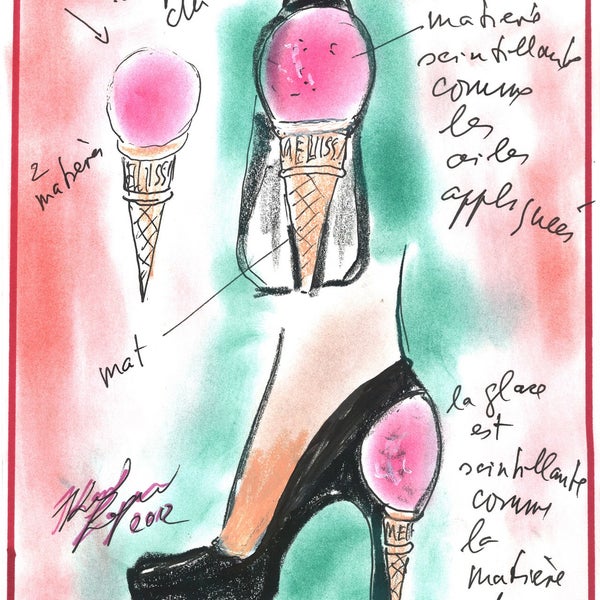 matière
scintillante
comme
les
ailes
appliquées
2
matières
MELISS
ELISS
mat
la glace
est
scintillante
comme
la
matière
MEL
2012